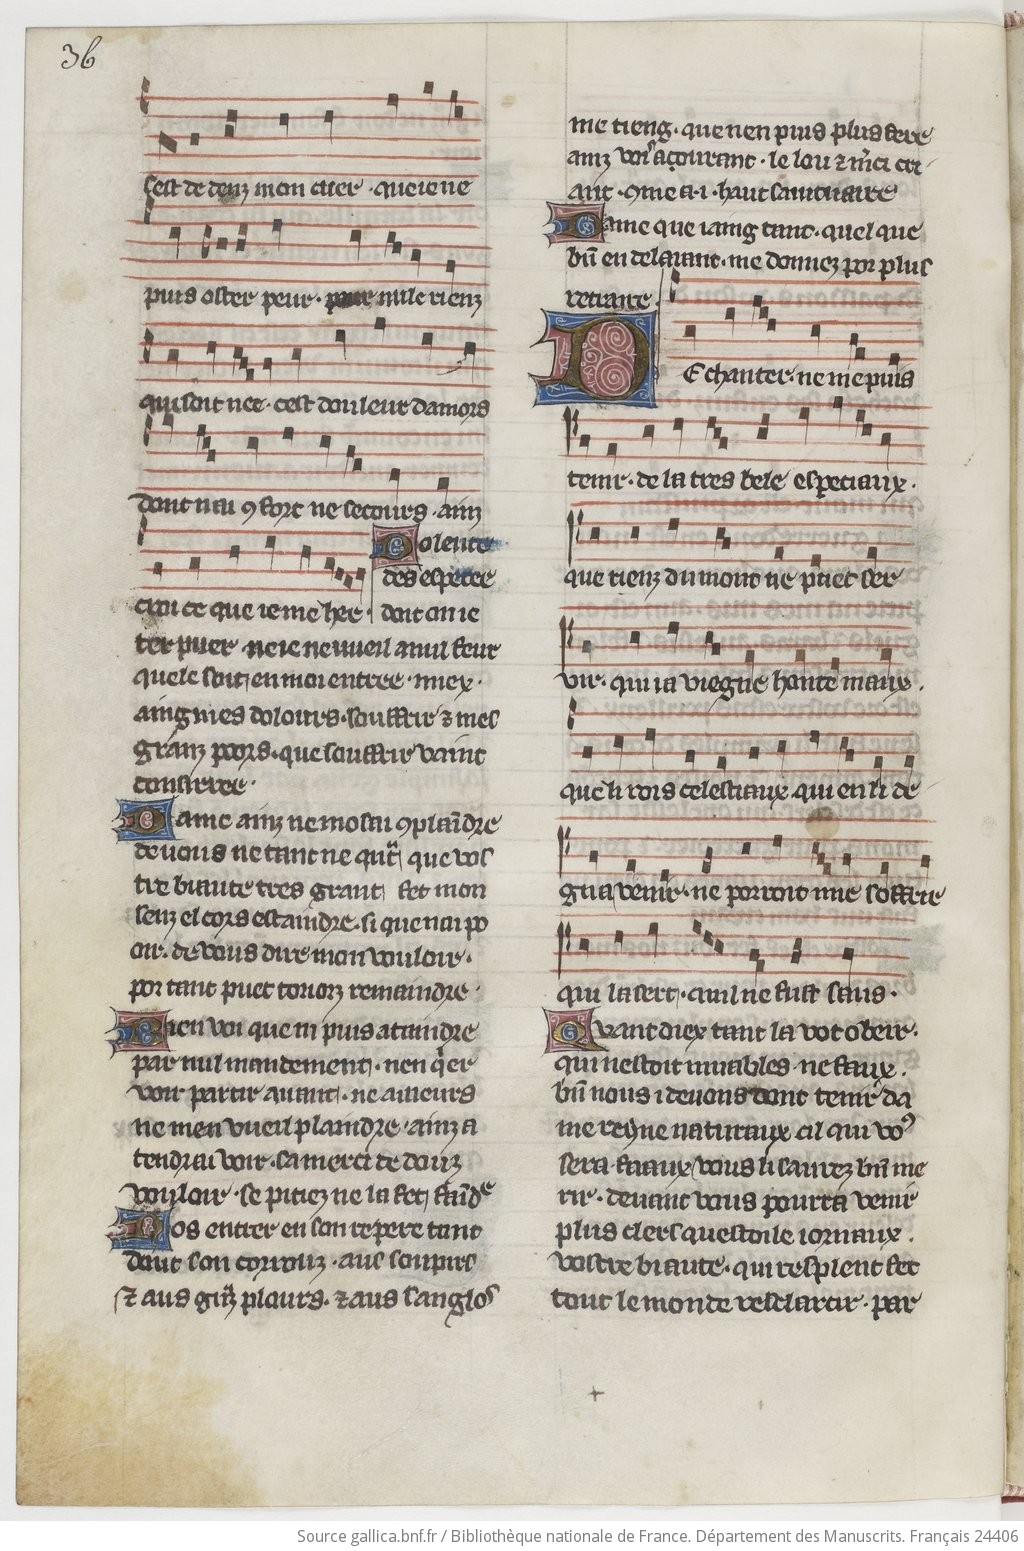 36
sest de denz mon cuer · que ie ne
puis oster peur · pour nule rienz
qui soit nee · cest douleur damors
dont nai 9fort ne secours · ainz
Dolente
desesperee
cuu ce que ie me hee · dont on ie
ter puer · ne ie ne vueil a nul feur
quele soit en moi entree · miex ·
aing mes dolours · souffrir z mes
granz poors · que souffrir vaint
consirree ·
Dame ainz ne mosai 9plaindre
de vous ne tant ne quant que vos
tre biaute tres grant fet mon
senz el cors estaindre · si que nai po
oir · de vous dire mon vouloir ·
por tant puet torionz remaindre ·
Bien voi que ni puis ataindre
par nul mandement · nen qier
voir partir auant · ne ailleurs
ne men vueil plaindre · ainz a
tendrai voir · sa merci de douz
vouloir · se pitiez ne la fet faindre
Los entrer en son repere tant
dout son corrouz · aus soupirs
z aus granz plours · z aus sanglos
me tieng · que nen puis plus fere
ainz voi sacourant · le lou z merci cri
ant · 9me a · i · haut saintuaire
Dame que iaing tant · quel que
bien en delaiant · me donnez por plus
retraire
DE chanter · ne me puis
tenir · de la tres bele especiaux ·
que rienz du mont ne puet ser
vir · qui ia viegne honte maux ·
que li rois celestiaux qui en li de
gna venir · ne porroit mie soffrir
qui la sert · quil ne fust saus ·
Quant diex tant la vot obeir ·
qui nestoit muables ne faux ·
bien nous i deuons dont tenir da
me reyne naturaux cil qui vo9
sera faaux vous li saurez bien me
rir · deuant vous pourra venir
plus clers questoile iornaux ·
vostre biaute · qui resplent fet
tout le monde resclarcir · par
Source gallica.bnf.fr / Bibliothèque nationale de France. Département des Manuscrits. Français 24406